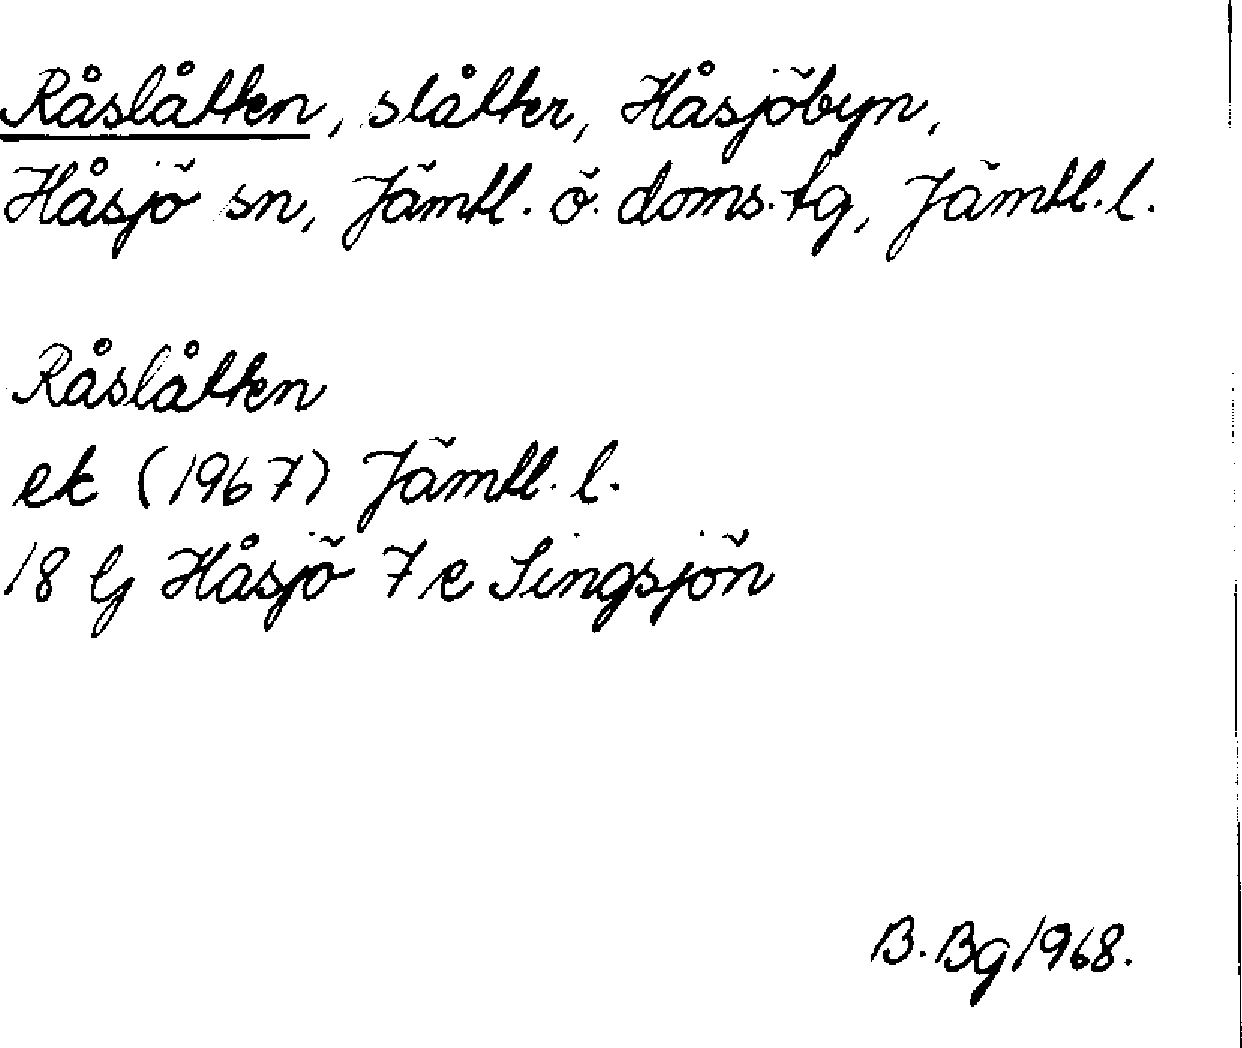 Råslåtten, slåtter, Håsjöbyn,
Håsjö sn, Jämtl. ö. doms. tg, Jämtl. l.
Råslåtten
ek (1967) Jämtl. l.
18 G Håsjö 7 e Singsjön
B. Bg 1968.